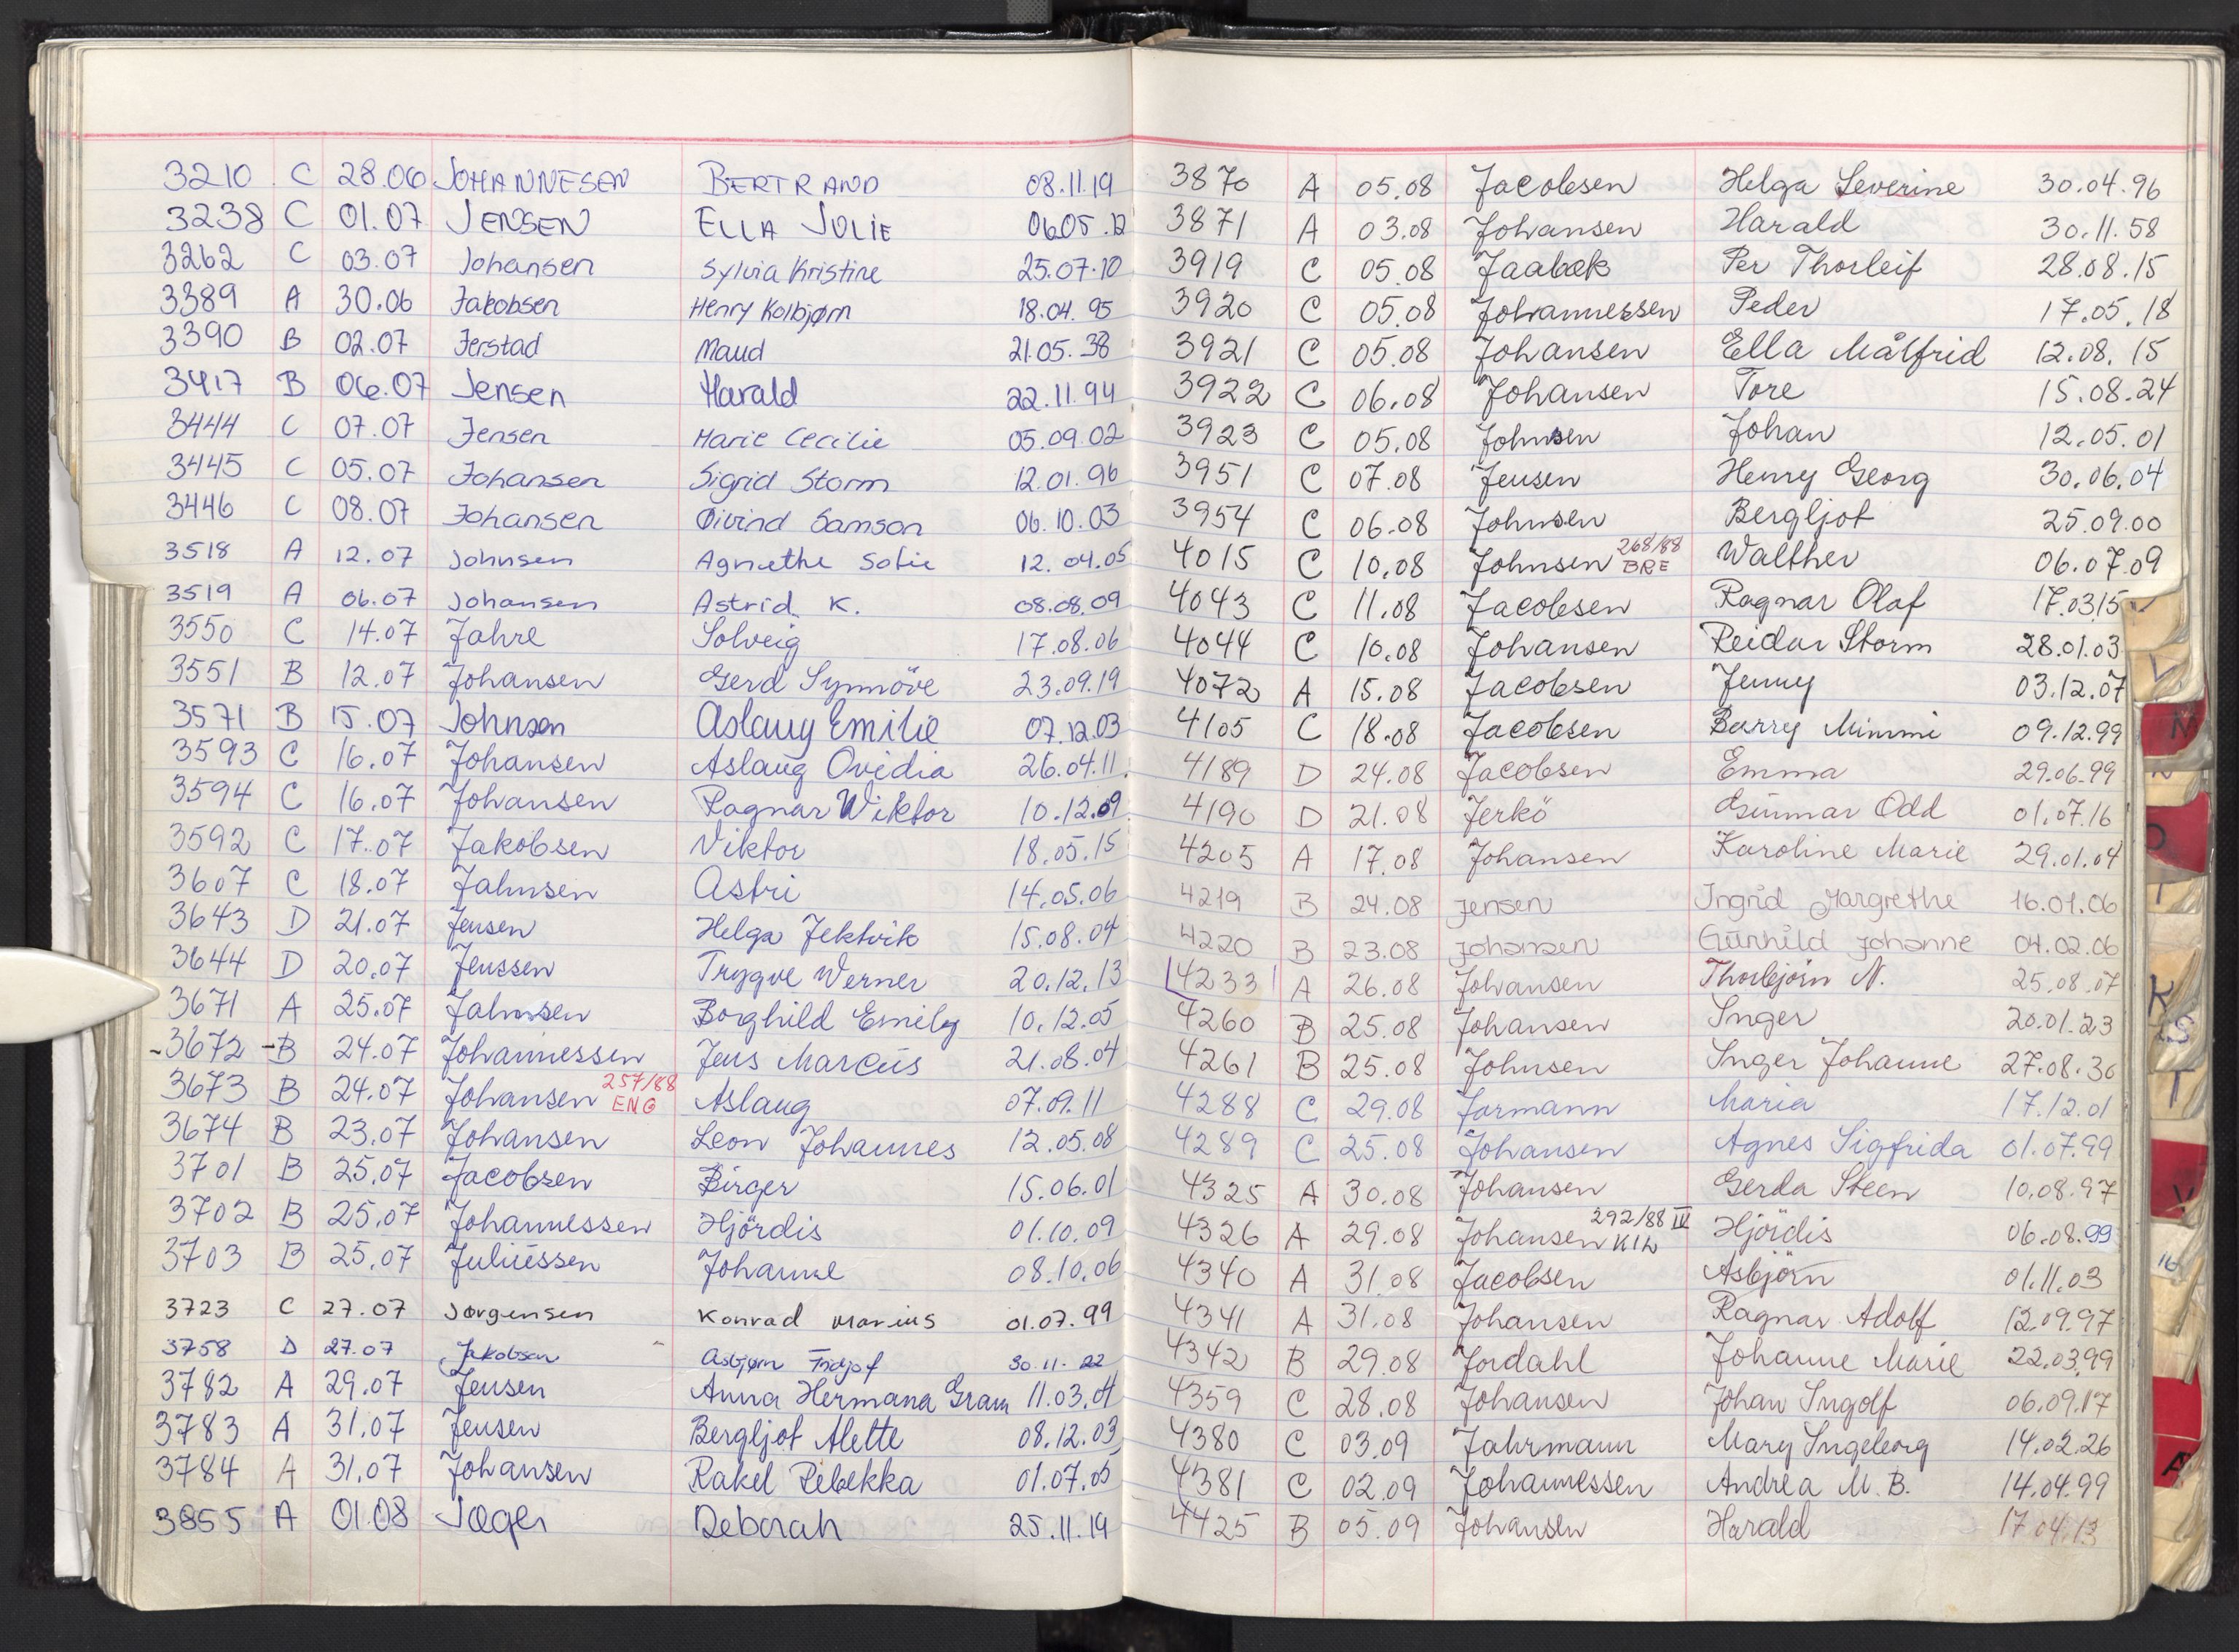 3210 C 28.06 JOHANNESEN BERTRAND 08.11.19
3238 C 01.07 JENSEN ELLA JULIE 06.05.12
3262 C 03.07 Johansen Sylvia Kristine 25.07.10
3389 A 30.06 Jakobsen Henry Kolbjørn 18.04.95
3390 B 02.07 Jerstad Maud 21.05.38
3417 B 06.07 Jensen Harald 22.11.94
3444 C 07.07 Jensen Marie Cecilie 05.09.02
3445 C 05.07 Johansen Sigrid Storm 12.01.96
3446 C 08.07 Johansen Øivind Samson 06.10.03
3518 A 12.07 Johnsen Agnethe Sofie 12.04.05
3519 A 06.07 Johansen Astrid K. 08.08.09
3550 C 14.07 Jahre Solveig 17.08.06
3551 B 12.07 Johansen Gerd Synnöve 23.09.19
3571 B 15.07 Johnsen Aslaug Emilie 07.12.03
3593 C 16.07 Johansen Aslaug Ovidia 26.04.11
3594 C 16.07 Johansen Ragnar Wiktor 10.12.09
3592 C 17.07 Jakobsen Viktor 18.05.15
3607 C 18.07 Jahnsen Astri 14.05.06
3643 D 21.07 Jensen Helga Jektvik 15.08.04
3644 D 20.07 Jenssen Trygve Werner 20.12.13
3671 A 25.07 Jahnsen Borghild Emily 10.12.05
3672 B 24.07 Johannessen Jens Marcus 21.08.04
3673 B 24.07 Johansen 257/88 ENG Aslaug 07.09.11
3674 B 23.07 Johansen Leon Johannes 12.05.08
3701 B 25.07 Jacobsen Birger 15.06.01
3702 B 25.07 Johannessen Hjördis 01.10.09
3703 B 25.07 Juliussen Johanne 08.10.06
3723 C 27.07 Jørgensen Konrad Marius 01.07.99
3758 D 27.07 Jakobsen Asbjørn Fridjof 30.11.22
3782 A 29.07 Jensen Anna Hermana Gram 11.03.04
3783 A 31.07 Jensen Bergljot Alette 08.12.03
3784 A 31.07 Johansen Rakel Rebekka 01.07.05
3855 A 01.08 Jæger Deborah 25.11.19
3870 A 05.08 Jacobsen Helga Severine 30.04.96
3871 A 03.08 Johansen Harald 30.11.58
3919 C 05.08 Jaabæk Per Thorleif 28.08.15
3920 C 05.08 Johannessen Peder 17.05.18
3921 C 05.08 Johansen Ella Målfrid 12.08.15
3922 C 06.08 Johansen Tore 15.08.24
3923 C 05.08 Johnsen Johan 12.05.01
3951 C 07.08 Jensen Henry Georg 30.06.04
3954 C 06.08 Johnsen Bergljot 25.09.00
4015 C 10.08 Johnsen 268/88 BRE Walther 06.07.09
4043 C 11.08 Jacobsen Ragnar Olaf 17.03.15
4044 C 10.08 Johansen Reidar Storm 28.01.03
4072 A 15.08 Jacobsen Jenny 03.12.07
4105 C 18.08 Jacobsen Barry Mimmi 09.12.99
4189 D 24.08 Jacobsen Emma 29.06.99
4190 D 21.08 Jerkö Gunnar Odd 01.07.16
4205 A 17.08 Johansen Karoline Marie 29.01.04
4219 B 24.08 Jensen Ingrid Margrethe 16.01.06
4220 B 23.08 Johansen Gunhild Johanne 04.02.06
4233 A 26.08 Johansen Thorbjörn N. 25.08.07
4260 B 25.08 Johansen Inger 20.01.23
4261 B 25.08 Johnsen Inger Johanne 27.08.30
4288 C 29.08 Jarmann Maria 17.12.01
4289 C 25.08 Johansen Agnes Sigfrida 01.07.99
4325 A 30.08 Johansen Gerda Steen 10.08.97
4326 A 29.08 Johansen 292/88 IV Hjördis 06.08.99
4340 A 31.08 Jacobsen Asbjörn 01.11.03
4341 A 31.08 Johansen Ragnar Adolf 12.09.97
4342 B 29.08 Jordahl Johanne Marie 22.03.99
4359 C 28.08 Johansen Johan Ingolf 06.09.17
4380 C 03.09 Jahrmann Mary Ingeborg 14.02.26
4381 C 02.09 Johannessen Andrea M. B. 14.04.99
4425 B 05.09 Johansen Harald 17.04.13